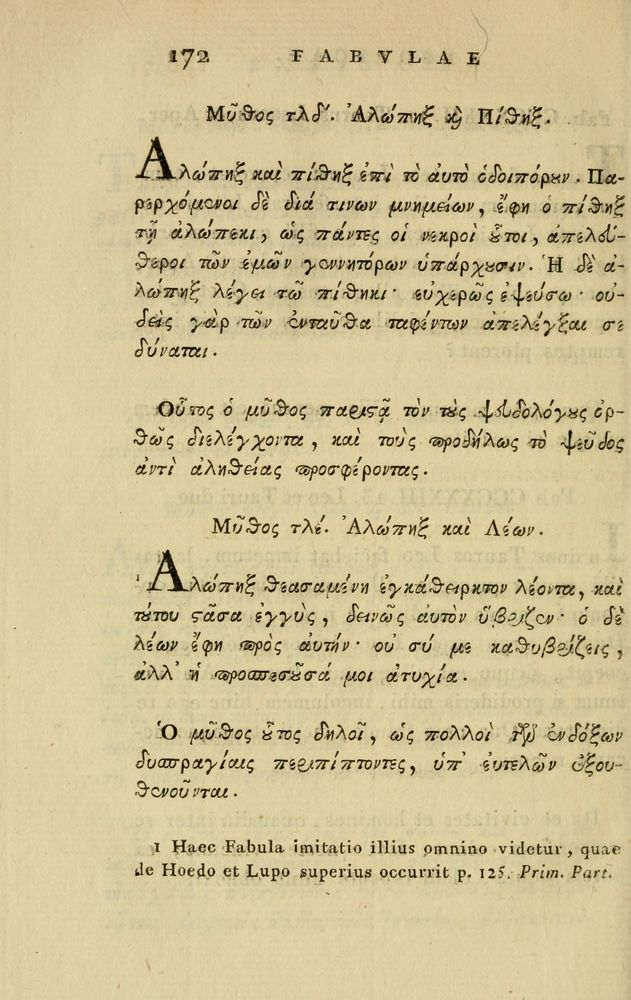 172 FABVLAE
Μῦθος τλδ΄. Ἀλώπηξ καὶ Πίθηξ.
Ἀλώπηξ καὶ πίθηξ ἐπὶ τὸ αὐτὸ ὁδοιπόρουν. Πα-
ρερχόμενοι δὲ διά τινων μνημείων, ἔφη ὁ πίθηξ
τῇ ἀλώπεκι, ὡς πάντες οἱ νεκροὶ οὗτοι, ἀπελεύ-
θεροι τῶν ἐμῶν γεννητόρων ὑπάρχουσιν. Ἡ δὲ ἀ-
λώπηξ λέγει τῷ πίθηκι· εὐχερῶς ἐψεύσω· οὐ-
δεὶς γὰρ τῶν ἐνταῦθα ταφέντων ἀπελέγξαι σε
δύναται.
Οὗτος ὁ μῦθος παριστᾷ τὸν τοὺς ψευδολόγους ὀρ-
θῶς διελέγχοντα, καὶ τοὺς προδήλως τὸ ψεῦδος
ἀντὶ ἀληθείας προσφέροντας.
Μῦθος τλέ. Ἀλώπηξ καὶ Λέων.
¹ Ἀλώπηξ θεασαμένη ἐγκάθειρκτον λέοντα, καὶ
τούτου στᾶσα ἐγγὺς, δεινῶς αὐτὸν ὕβριζεν· ὁ δὲ
λέων ἔφη πρὸς αὐτήν· οὐ σύ με καθυβρίζεις,
ἀλλ' ἡ προσπεσοῦσά μοι ἀτυχία.
Ὁ μῦθος οὗτος δηλοῖ, ὡς πολλοὶ τῶν ἐνδόξων
δυσπραγίαις περιπίπτοντες, ὑπ' εὐτελῶν ἐξου-
θενοῦνται.
1 Haec Fabula imitatio illius omnino videtur, quae
de Hoedo et Lupo superius occurrit p. 125. Prim. Part.